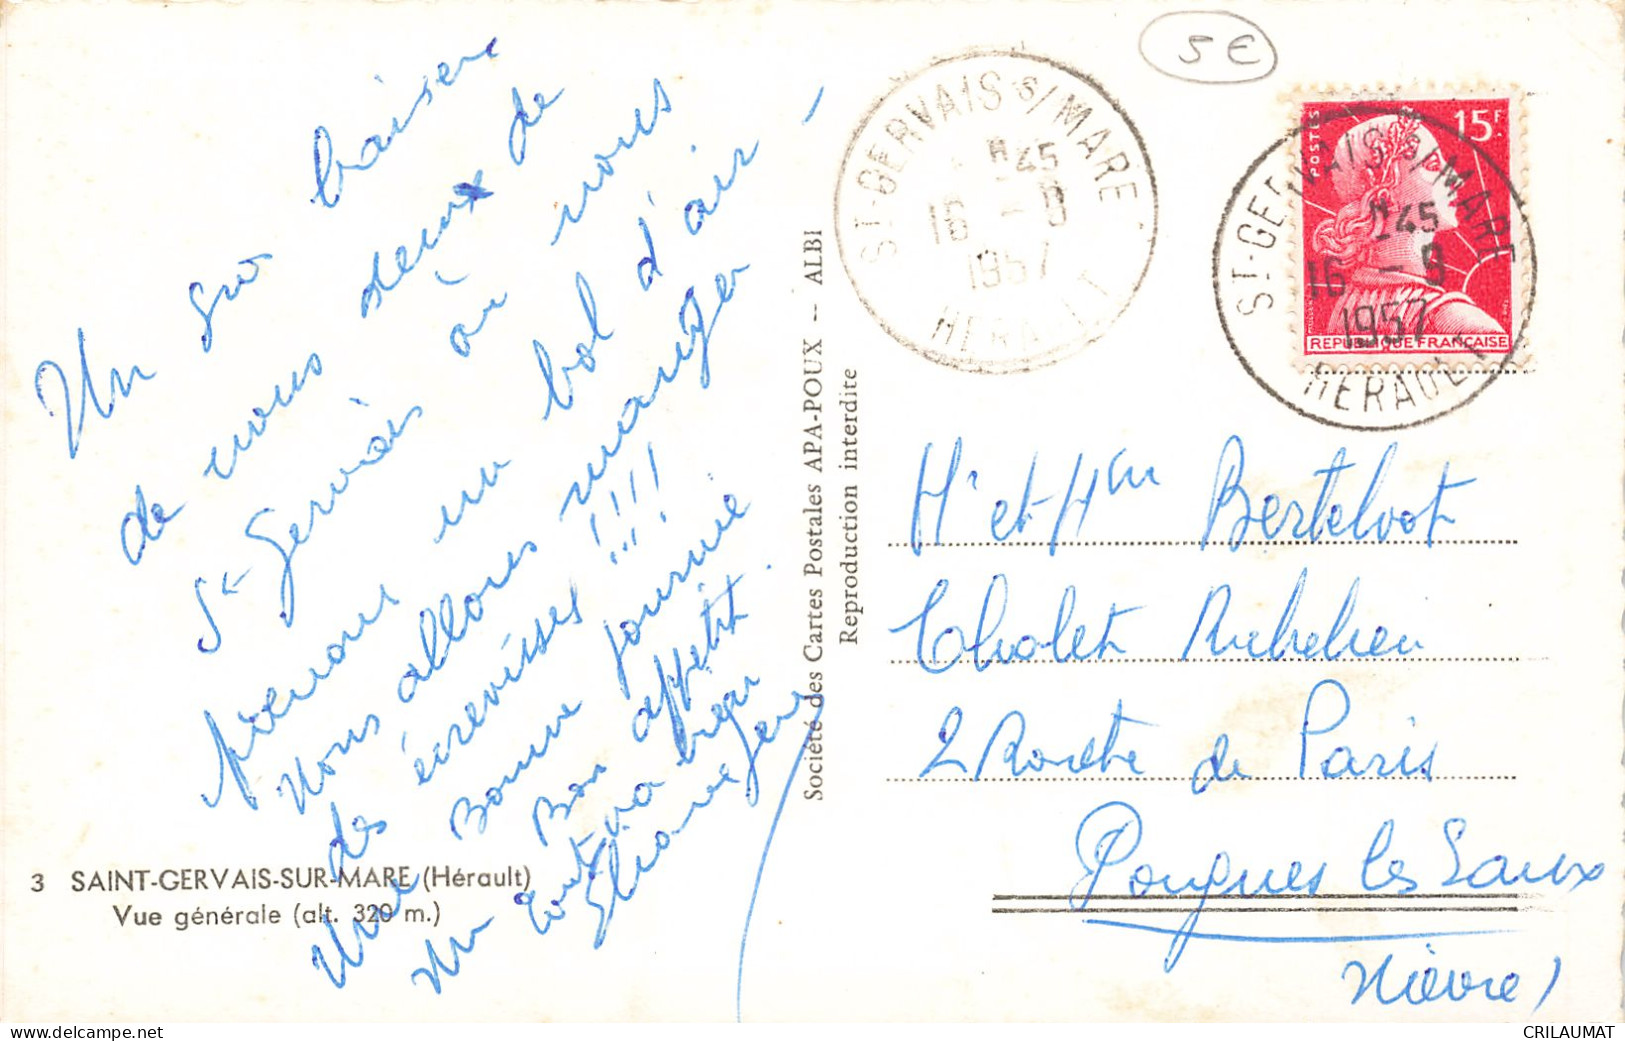 Un gros baiser
de nous deux de
St Gervais où nous
prenons un bol d'air -
Nous allons manger -
des écrevisses !!! !!!
Une Bonne journée
Un Bon appétit.
Tout va bien
Eliane Jean
3 SAINT-GERVAIS-SUR-MARE (Hérault)
Vue générale (alt. 320 m.)
Société des Cartes Postales APA-POUX -- ALBI
Reproduction interdite
5€
ST-GERVAIS S/MARE
45
16 - 9
1957
HERAULT
POSTES
15F
REPUBLIQUE FRANÇAISE
ST-GERVAIS S/MARE
45
16 - 9
1957
HERAULT
Mr et Mme Berteloot
Chalet Richelieu
2 Route de Paris
Pougues les Eaux
Nièvre)
CRILAUMAT